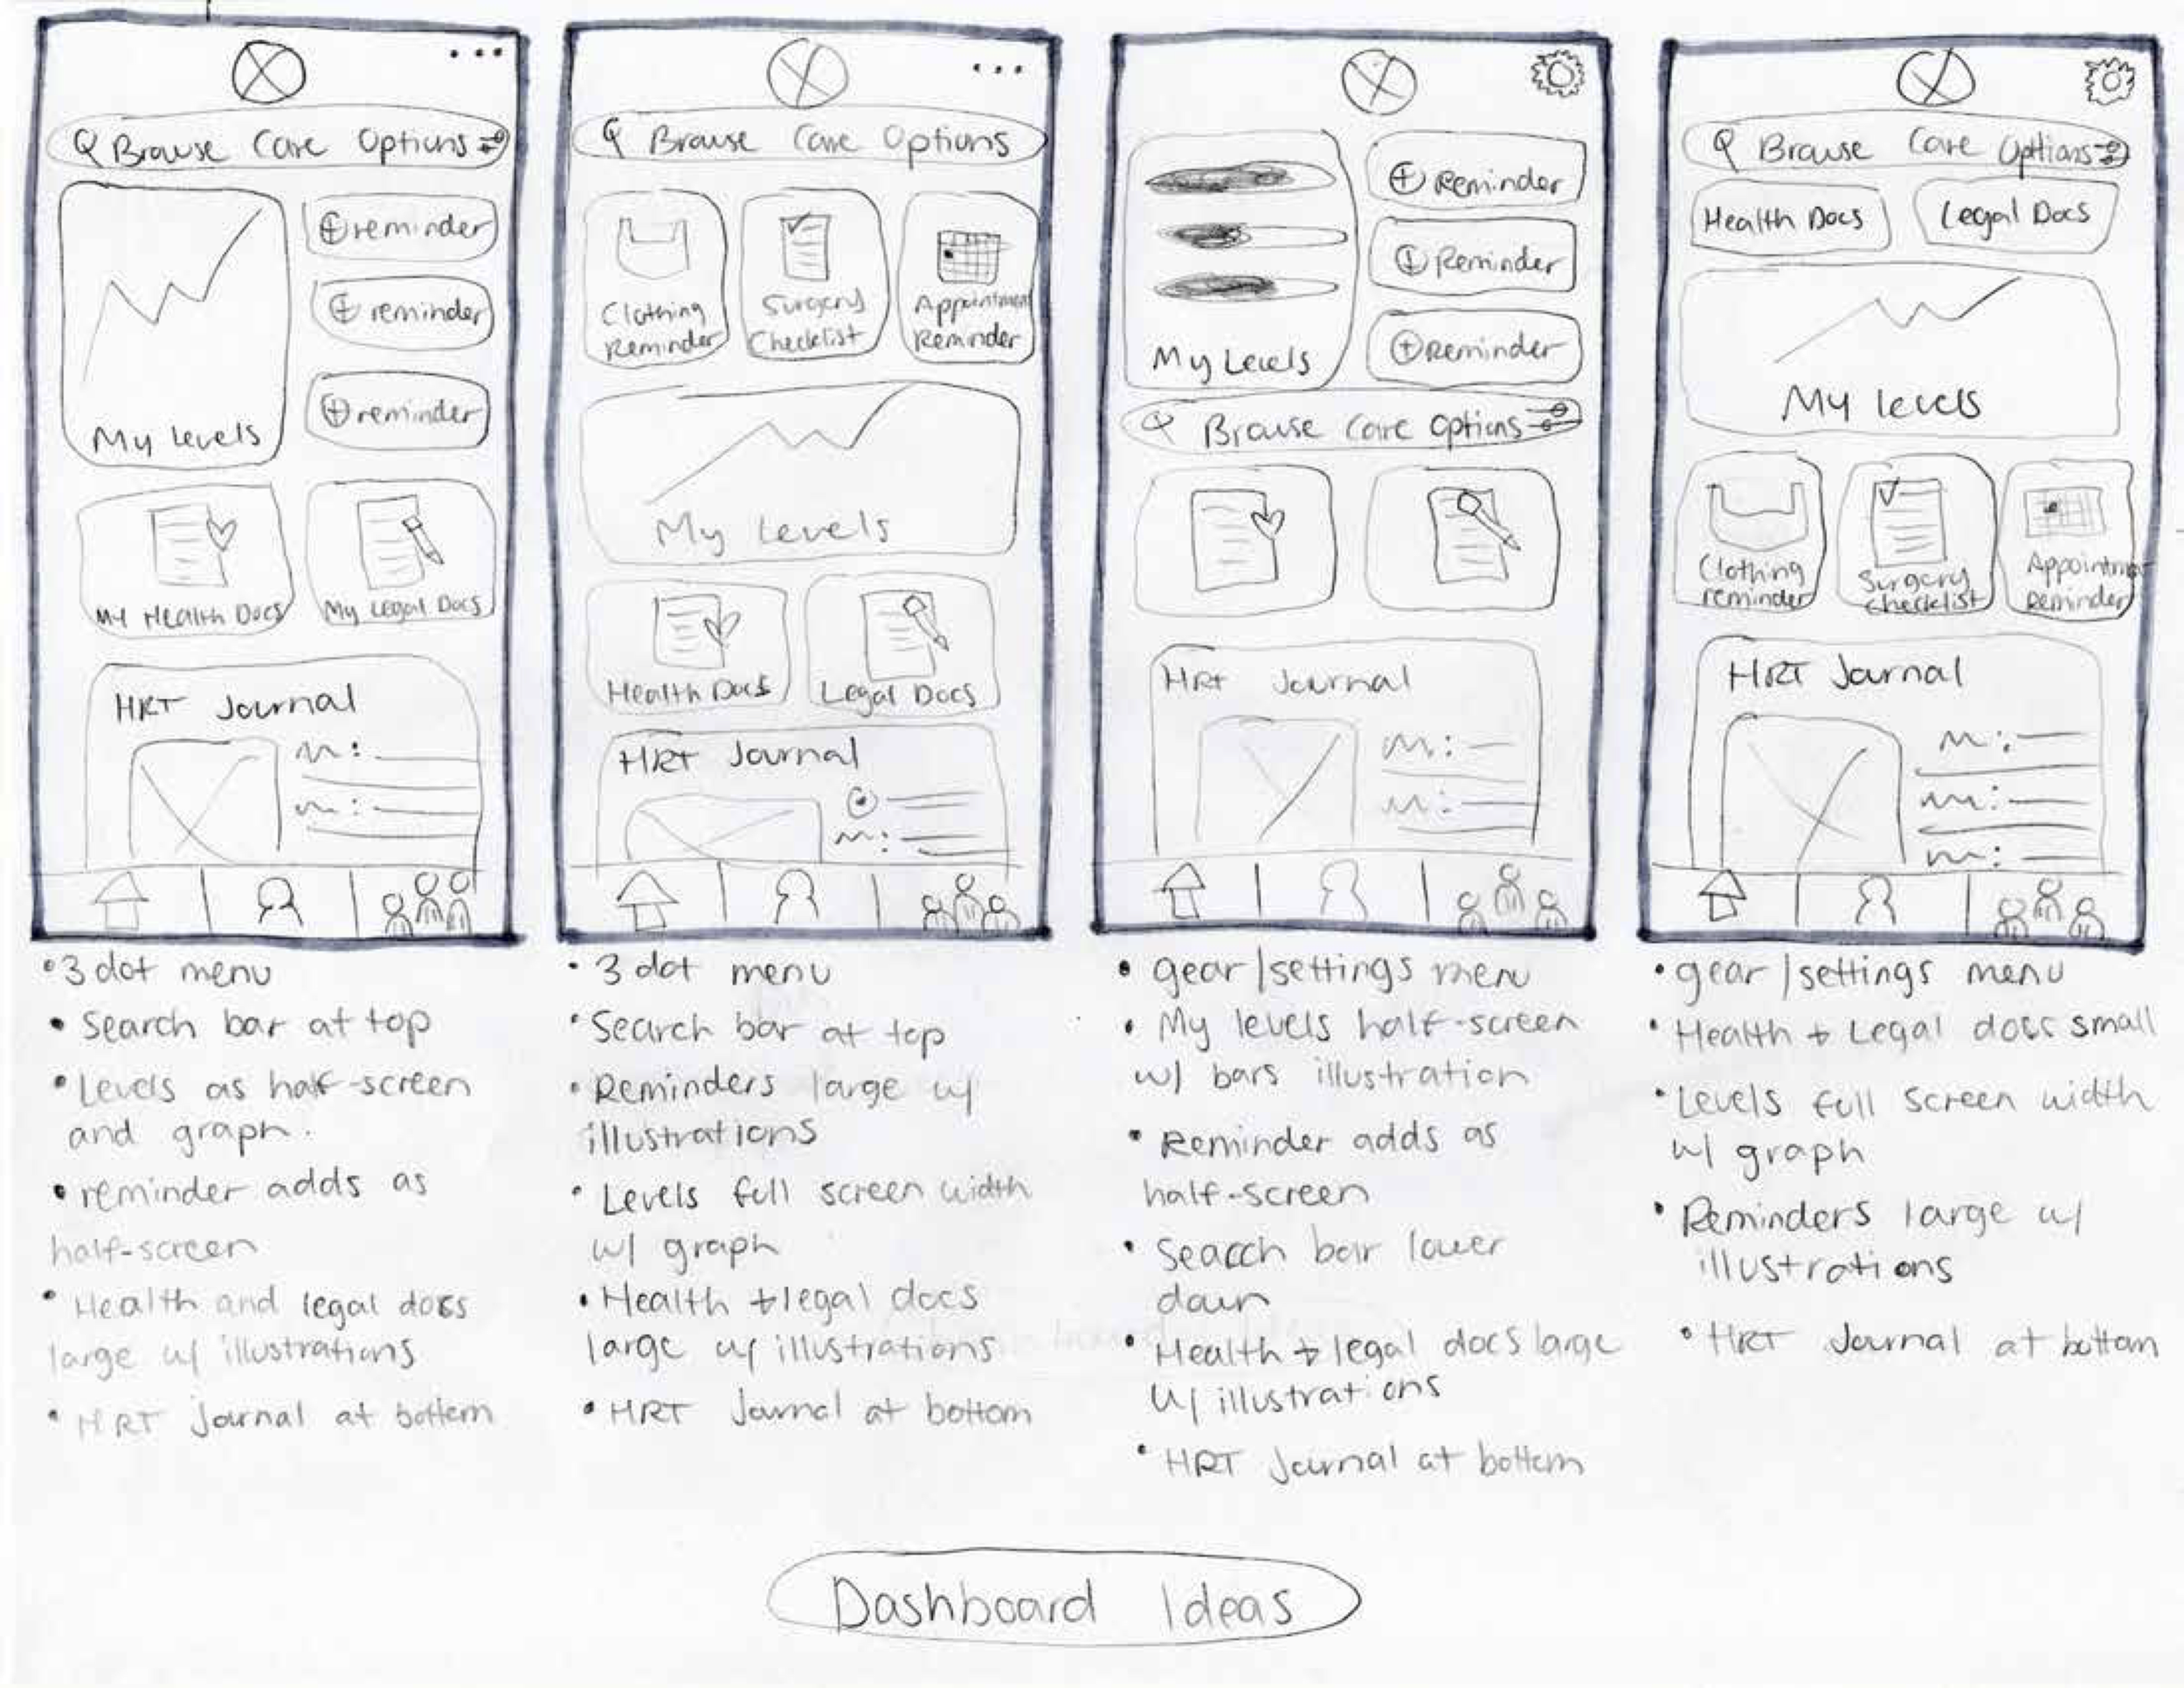 Browse Care Options
reminder
reminder
reminder
My levels
My Health Docs
My Legal Docs
HRT Journal
• 3 dot menu
• Search bar at top
• Levels as half-screen
and graph.
• reminder adds as
half-screen
• Health and legal docs
large w/ illustrations
• HRT Journal at bottom
Browse Care Options
Clothing
Reminder
Surgery
Checklist
Appointment
Reminder
My Levels
Health Docs
Legal Docs
HRT Journal
• 3 dot menu
• Search bar at top
• Reminders large w/
illustrations
• Levels full screen width
w/ graph
• Health + legal docs
large w/ illustrations
• HRT Journal at bottom
My Levels
Reminder
Reminder
Reminder
Browse Care Options
HRT Journal
• gear/settings menu
• My levels half-screen
w/ bars illustration
• Reminder adds as
half-screen
• Search bar lower
down
• Health + legal docs large
w/ illustrations
• HRT Journal at bottom
Browse Care Options
Health Docs
Legal Docs
My levels
Clothing
reminder
Surgery
checklist
Appointment
Reminder
HRT Journal
• gear/settings menu
• Health + Legal docs small
• Levels full screen width
w/ graph
• Reminders large w/
illustrations
• HRT Journal at bottom
Dashboard Ideas